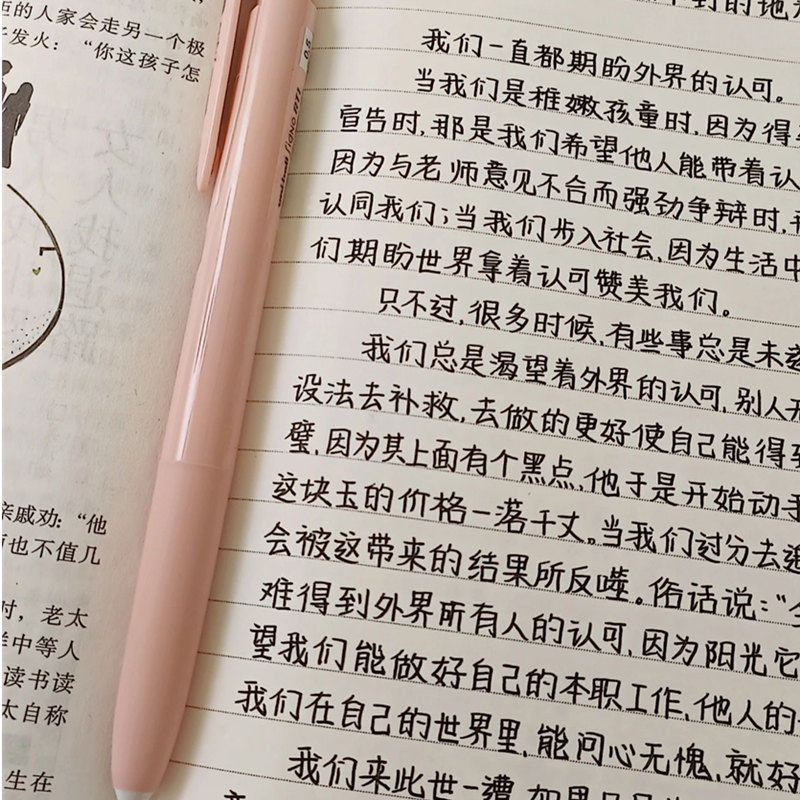 的人家会走另一个极
发火：“你这孩子怎
亲戚劝：“他
也不值几
时，老太
中等人
读书读
太自称
生在
0.5
我们一直都期盼外界的认可。
当我们是稚嫩孩童时,因为得
宣告时,那是我们希望他人能带着认
因为与老师意见不合而强劲争辩时,
认同我们;当我们步入社会,因为生活中
们期盼世界拿着认可赞美我们。
只不过,很多时候,有些事总是未
我们总是渴望着外界的认可,别人
设法去补救,去做的更好使自己能得到
璧,因为其上面有个黑点,他于是开始动手
这块玉的价格一落千丈。当我们过分去追
会被这带来的结果所反噬。俗话说:“
难得到外界所有人的认可,因为阳光它
望我们能做好自己的本职工作,他人的
我们在自己的世界里,能问心无愧,就好
我们来此世一遭,如果只是